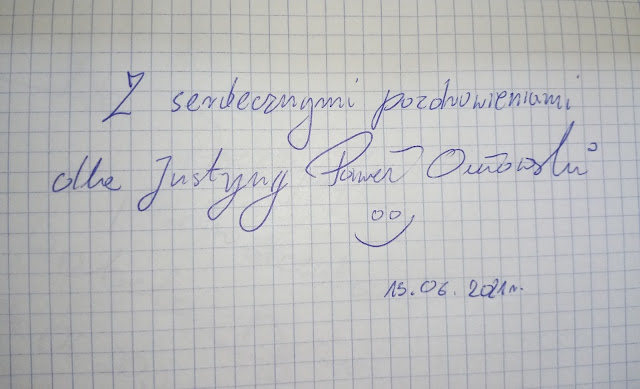 Z serdecznymi pozdrowieniami
dla Justyny Paweł
15.06.2021r.